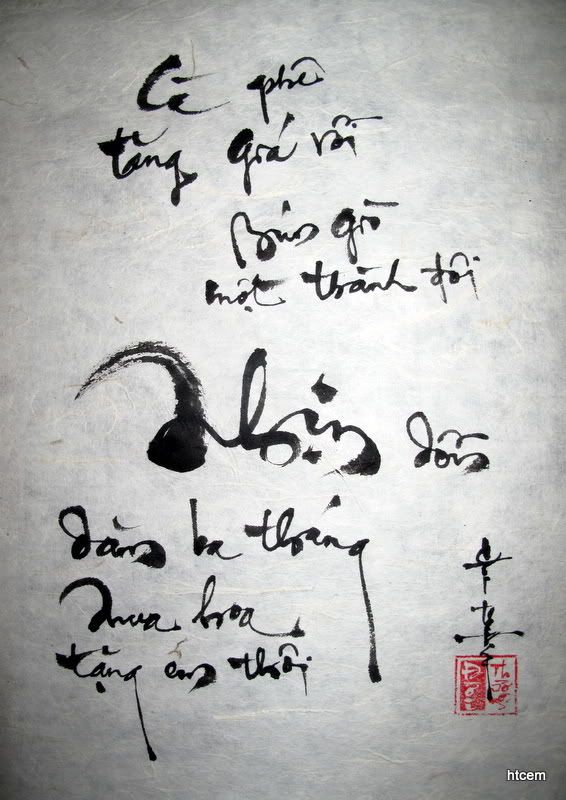 Cà phê
tăng giá rồi
Bún giò
một thành đôi
Nhịn dồn
dăm ba tháng
Mua hoa
tặng em thôi
htcem